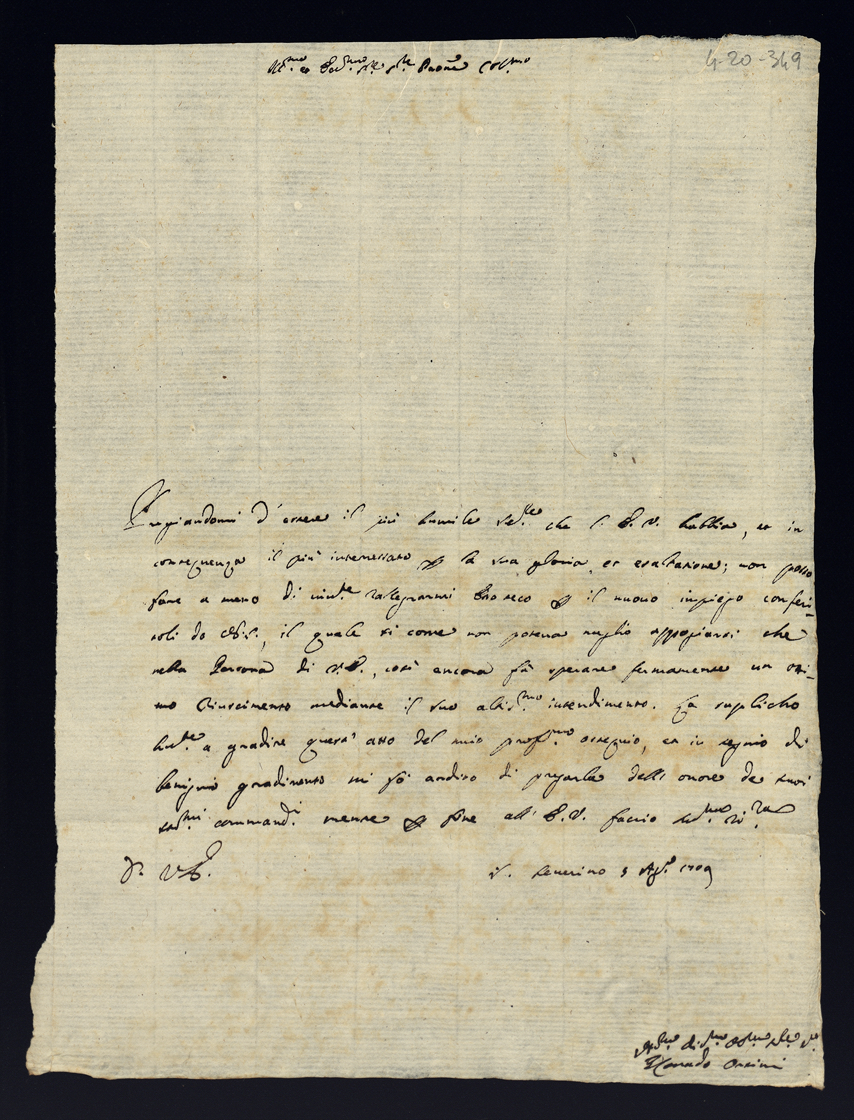 4-20-349
Ill.mo et Ecc.mo Sig.re Sig.re Padrone Col.mo
Preggiandomi d'essere il più humile Ser.re che l'E.V. habbia, et in
conseguenza il più interessato per la sua gloria, et esaltazione; non posso
fare a meno di viv.te rallegrarmi seco per il nuovo impiego conferi-
toli da, il quale si come non poteva meglio appogiarsi che
nella Persona di V.E., così ancora fà sperare fermamente un otti-
mo Riuscimento mediante il suo altis.mo intendimento. La suplicho
hu.te a gradire quest'atto del mio prof.mo ossequio, et in segnio di
benignio gradimento mi fò ardito di pregarla dell'onore de suoi
commandi mentre per fine all'E.V. faccio
Di V.E.
S. Severino 3 Ag.o 1709
Orsini